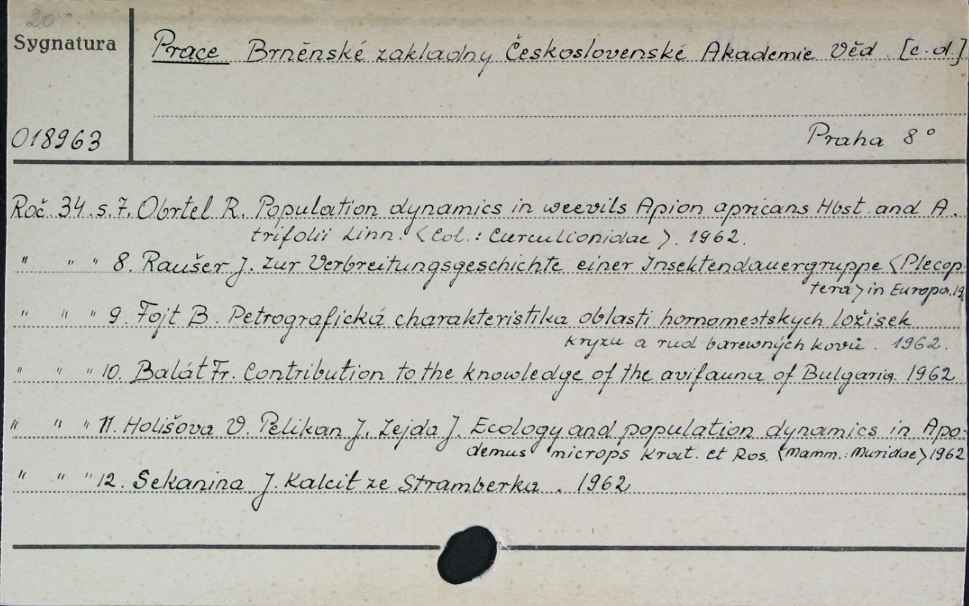 20
Sygnatura
Prace Brněnské zakladny Československé Akademie Věd. [c.d.]
018963
Praha 8°
Roč. 34. s. 7. Obrtel R. Population dynamics in weevils Apion apricans Hbst. and A.
trifolii Linn. <Col.: Curculionidae>. 1962.
" " " 8. Raušer J. Zur Verbreitungsgeschichte einer Insektendauergruppe <Plecop-
tera> in Europa. 19
" " " 9. Fojt B. Petrografická charakteristika oblasti hornomestskych ložisek
kryzu a rud barewných kovů. 1962.
" " " 10. Balát Fr. Contribution to the knowledge of the avifauna of Bulgaria. 1962.
" " " 11. Holišova V. Pelikan J. Zejda J. Ecology and population dynamics in Apo-
demus microps Krat. et Ros. <Mamm.: Muridae> 1962
" " " 12. Sekanina J. Kalcit ze Stramberka. 1962